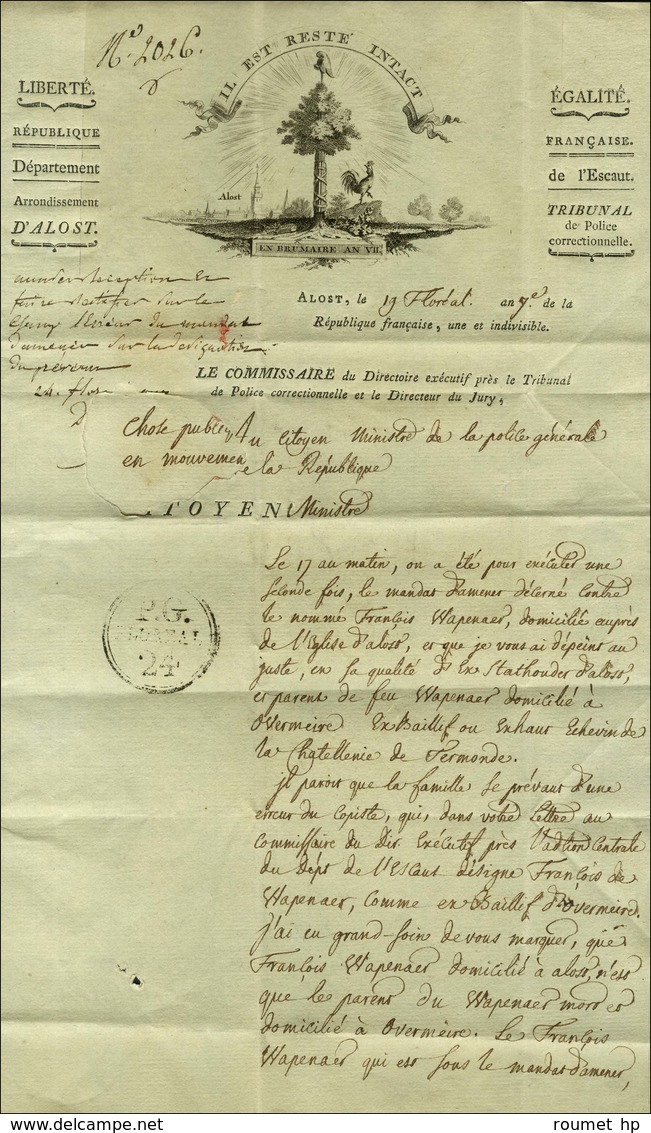 N° 2026.
IL EST RESTÉ INTACT
LIBERTÉ.
RÉPUBLIQUE
Département
Arrondissement
D'ALOST.
ÉGALITÉ.
FRANÇAISE.
de l'Escaut.
TRIBUNAL
de Police
correctionnelle.
Alost
EN BRUMAIRE AN VII.
réception et
sur le
du mandat
d'amener sur la désignation
du prévenu
24. flor
ALOST, le 19 Floréal. an 7e. de la
République française, une et indivisible.
LE COMMISSAIRE du Directoire exécutif près le Tribunal
de Police correctionnelle et le Directeur du Jury,
Chose publiq
en mouvemen
Au Citoyen Ministre de la police générale
e la République
TOYEN Ministre
P.G.
FLOREAL
24
Le 17 au matin, on a été pour exécuter une
seconde fois, le mandat d'amener décerné contre
le nommé François Wapenaer, domicilié auprès
de l'Eglise d'alost, et que je vous ai dépeint au
juste, en sa qualité d'Ex Stathouder d'alost,
et parent de feu Wapenaer domicilié à
Overmeire Ex Baillif ou Enhaut Echevin de
la Chatellenie de Termonde.
jl paroit que la famille se prévaut d'une
erreur du Copiste, qui, dans votre Lettre au
Commissaire du Dir. Exécutif près l'adtion Centrale
du Dépt de l'Escaut désigne François de
Wapenaer, comme ex Baillif d'Overmeire.
J'ai eu grand-soin de vous marquer, que
François Wapenaer domicilié à alost, n'est
que le parent du Wapenaer mort et
domicilié à Overmeire. Le François
Wapenaer qui est sous le mandat d'amener,
© roumet hp